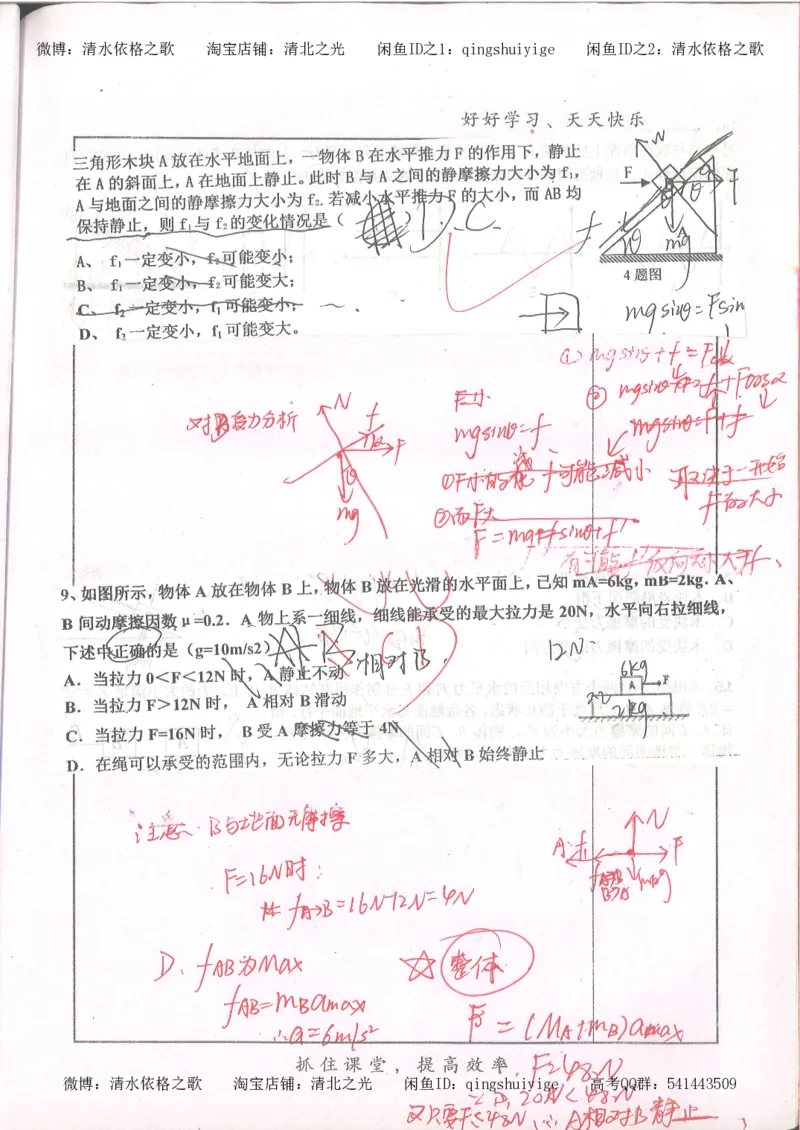 微博：清水依格之歌 淘宝店铺：清北之光 闲鱼ID之1：qingshuiyige 闲鱼ID之2：清水依格之歌
好好学习、天天快乐
三角形木块 A 放在水平地面上，一物体 B 在水平推力 F 的作用下，静止
在 A 的斜面上，A 在地面上静止。此时 B 与 A 之间的静摩擦力大小为 f₁，
A 与地面之间的静摩擦力大小为 f₂. 若减小水平推力 F 的大小，而 AB 均
保持静止，则 f₁与 f₂的变化情况是（ D. C.
A、 f₁一定变小，f₂可能变小；
B、 f₁一定变小，f₂可能变大；
C、 f₂一定变小，f₁可能变小；
D、 f₂一定变小，f₁可能变大。
N
F
F
θ
θ
mg
f
4 题图
mgsinθ=Fsin
① mgsinθ+f=Fcosα
② mgsinθ=f+Fcosα
mgsinθ=F+f
取决于一开始
F的大小
对B受力分析
N
f
F
θ
mg
F小
mgsinθ=f
f可能减小
F=mgsinθ+f'
9、如图所示，物体 A 放在物体 B 上，物体 B 放在光滑的水平面上，已知 mA=6kg，mB=2kg. A、
B 间动摩擦因数 μ=0.2. A 物上系一细线，细线能承受的最大拉力是 20N，水平向右拉细线，
下述中正确的是（g=10m/s2）
A. 当拉力 0<F<12N 时，A 静止不动 相对B
B. 当拉力 F>12N 时， A 相对 B 滑动
C. 当拉力 F=16N 时， B 受 A 摩擦力等于 4N
D. 在绳可以承受的范围内，无论拉力 F 多大，A 相对 B 始终静止
12N
6kg
A
F
2kg
注意：B与地面无摩擦
F=16N时：
fA→B=16N-12N=4N
N
A:
F
D、fAB为Max
fAB=mBamax
∴a=6m/s²
☆ 整体
F=(MA+mB)amax
抓住课堂，提高效率
F=48N
微博：清水依格之歌 淘宝店铺：清北之光 闲鱼ID：qingshuiyige 高考QQ群：541443509
20N<48N
只要F≤48N，∴A相对B静止